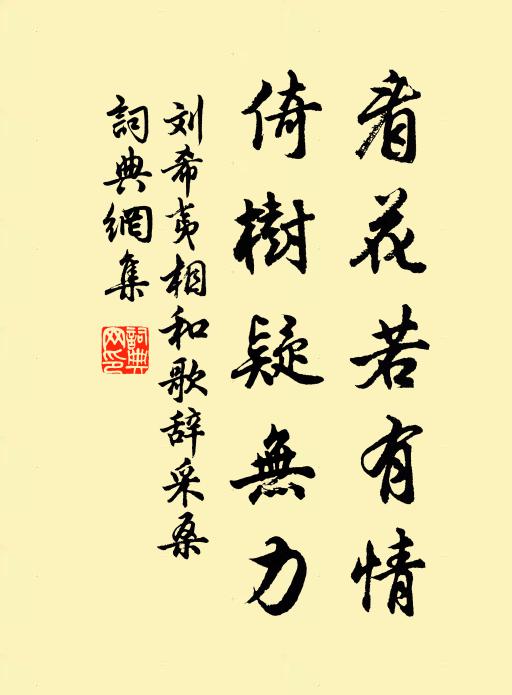 看花若有情
倚樹疑無力
刘希夷相和歌辞采桑
詞典網集
詞典网印